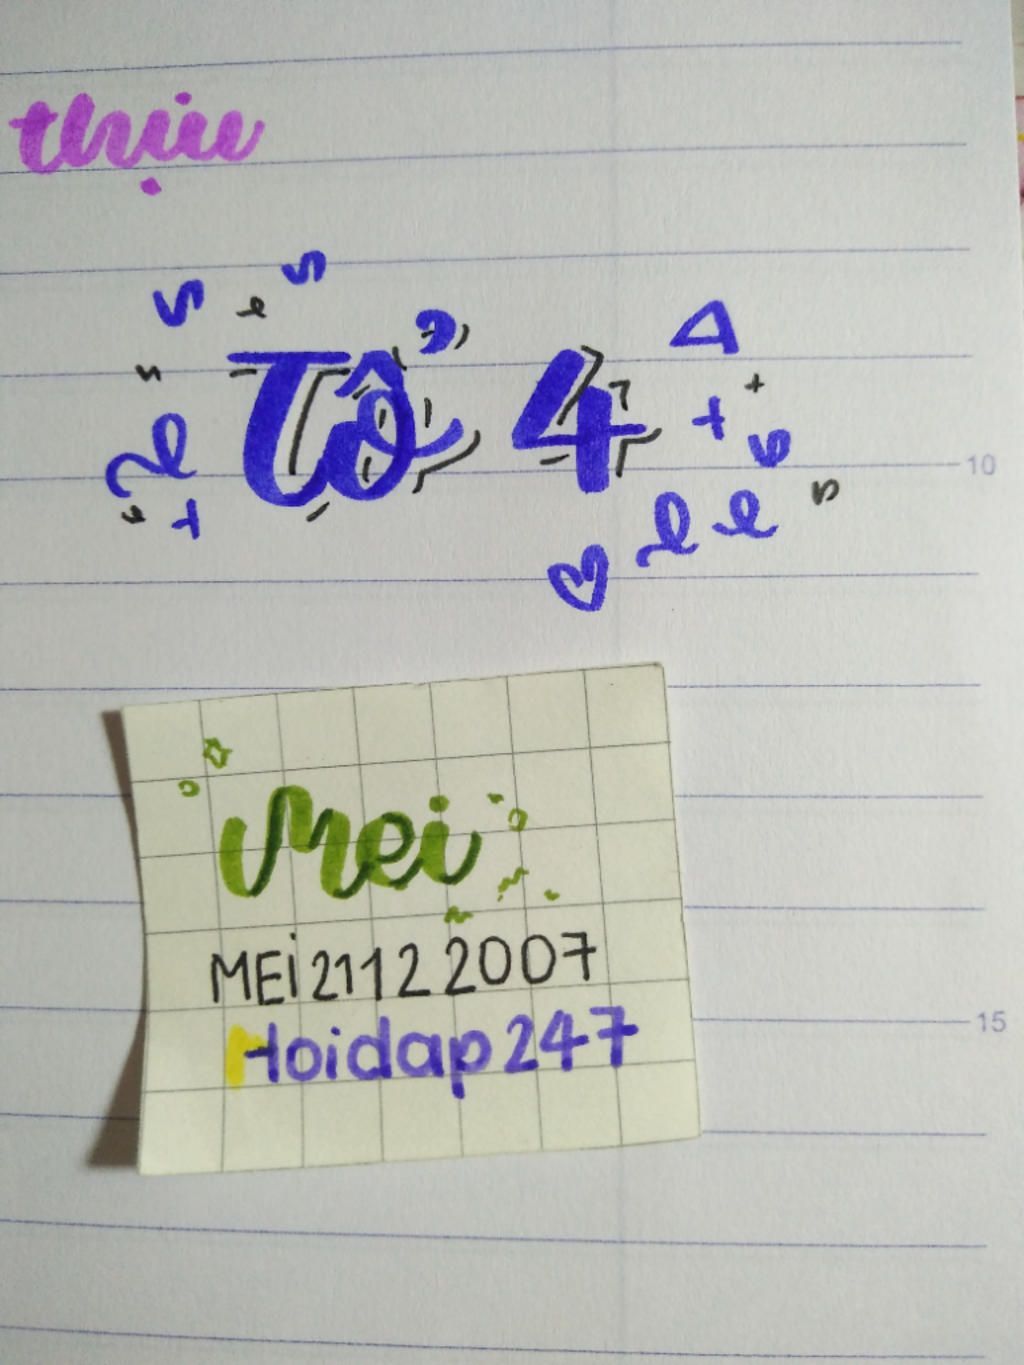 thịu
Tổ 4
10
Mei
MEi21122007
Hoidap247
15